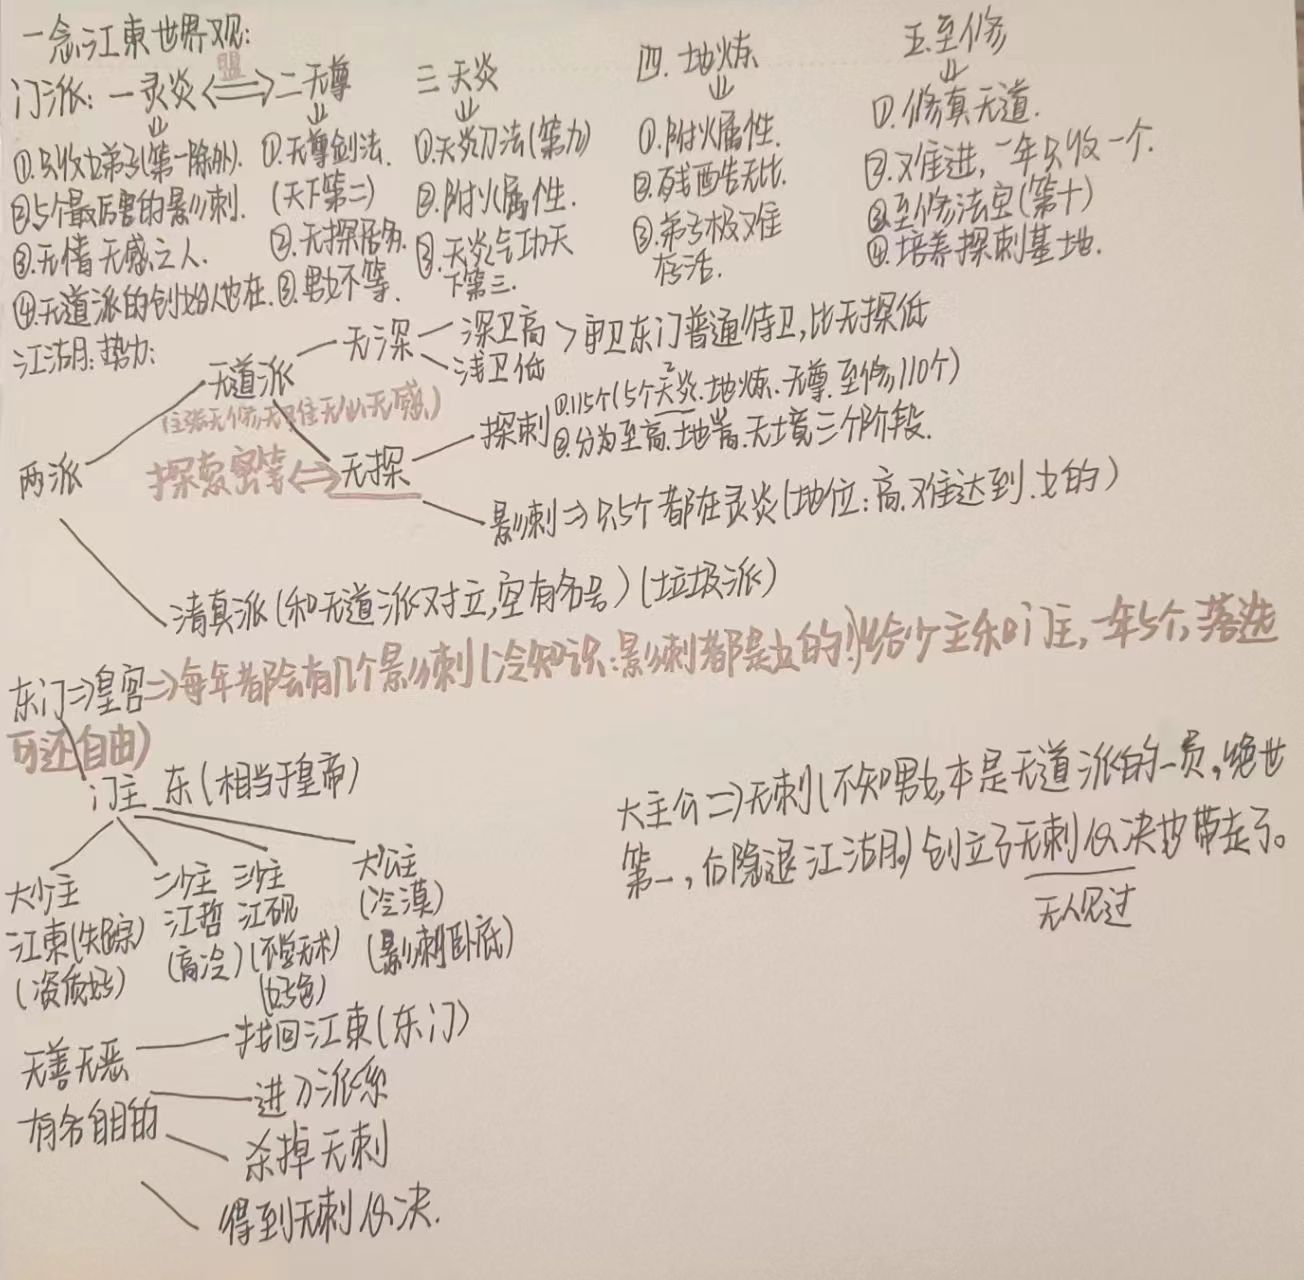 一念江東世界观:
门派: 一灵炎 盟 二无尊 三天炎 四.地炼 五.至修
①只收女弟子(第一除外).
②5个最厉害的影刺.
③.无情无感之人.
④.无道派的创始人也在.
①.无尊剑法.
(天下第二)
②.无探任务.
③.男女不等.
①.天炎刀法(第九)
②.附火属性.
③.天炎气功天
下第三.
①.附火属性.
②.残酷无比.
③.弟子极难
存活.
①.修真无道.
②.难进,一年只收一个.
③.至修法宝(第十)
④.培养探刺基地.
江湖:势力:
两派
无道派
无深
深卫高
浅卫低
>审卫东门普通侍卫,比无探低
探索密等
无探
探刺
①.115个(5个天炎.地炼.无尊.至修,110个)
②.分为至高.地嵩.无境三个阶段.
影刺⇒只5个都在灵炎(地位:高.难达到.女的)
清真派(和无道派对立,空有名号)(垃圾派)
东门⇒皇宫⇒每年都会有几个影刺(冷知识:影刺都是女的!)给少主和门主,一年5个,落选
可还自由)
门主 东(相当于皇帝)
大少主
江東(失踪)
(资质好)
二少主
江哲
(高冷)
三少主
江砚
(不学无术)
(好色)
大公主
(冷漠)
(影刺卧底)
大主公⇒无刺(不知男女,本是无道派的一员,绝世
第一,后隐退江湖。)创立了无刺仪决也带走了。
无人见过
无善无恶
有各自目的
找回江東(东门)
进刀派系
杀掉无刺
得到无刺仪决.